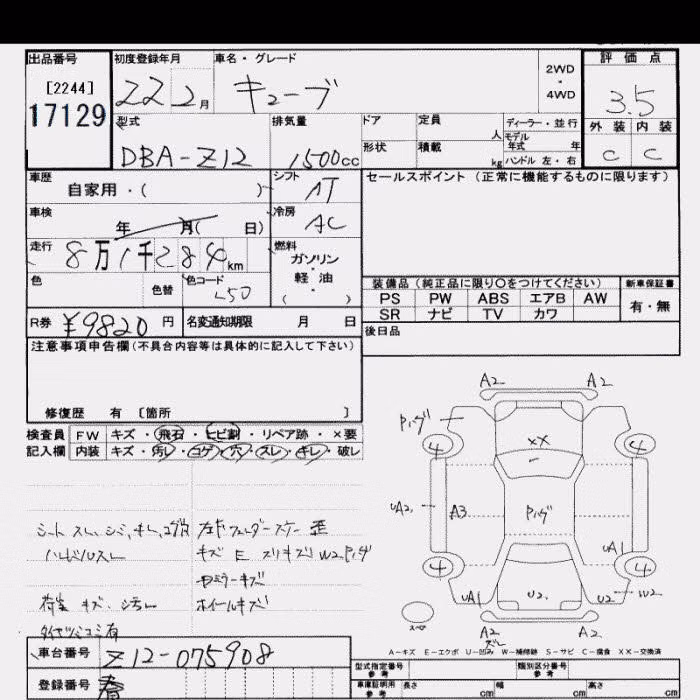 出品番号 初度登録年月 車名・グレード 評価点
[2244] 22 2月 キューブ 2WD・4WD 3.5
17129 型式 排気量 ドア 定員 人 ディーラー・並行 外装 内装
DBA-Z12 1500cc 形状 積載 kg モデル年式 年 ハンドル 左・右 C C
車歴 自家用・( ) シフト AT セールスポイント (正常に機能するものに限ります)
車検 年 月( 日) 冷房 AC
走行 8万1千284km 燃料 ガソリン・軽油・( )
色 色替 色コード L50
装備品 (純正品に限り〇をつけてください) 新車保証書
PS PW ABS エアB AW 有・無
SR ナビ TV カワ
R券 ¥9820円 名変通知期限 月 日 後日品
注意事項申告欄(不具合内容等は具体的に記入して下さい)
修復歴 有 [箇所 ]
検査員 FW キズ・飛石・ヒビ割・リペア跡・×要
記入欄 内装 キズ・汚レ・コゲ・穴・スレ・キレ・破レ
A2 A2
4 XX 4
UA2 A3 Pハゲ
UA1
4 4
UA1 U2 U2 W2
スペア A2 A2
シートスレ、シミ、キレ、コゲ穴 左Fフェンダーステー歪
ハンドルスレ キズ E スリキズ W2 Pハゲ
ミラーキズ
荷室 キズ、シミ ホイールキズ
A-キズ E-エクボ U-凹み W-補修跡 S-サビ C-腐食 XX-交換済
車台番号 Z12-075908
登録番号 春
型式指定番号 参考 類別区分番号 参考
車庫証明用 参考 長さ cm 幅 cm 高さ cm